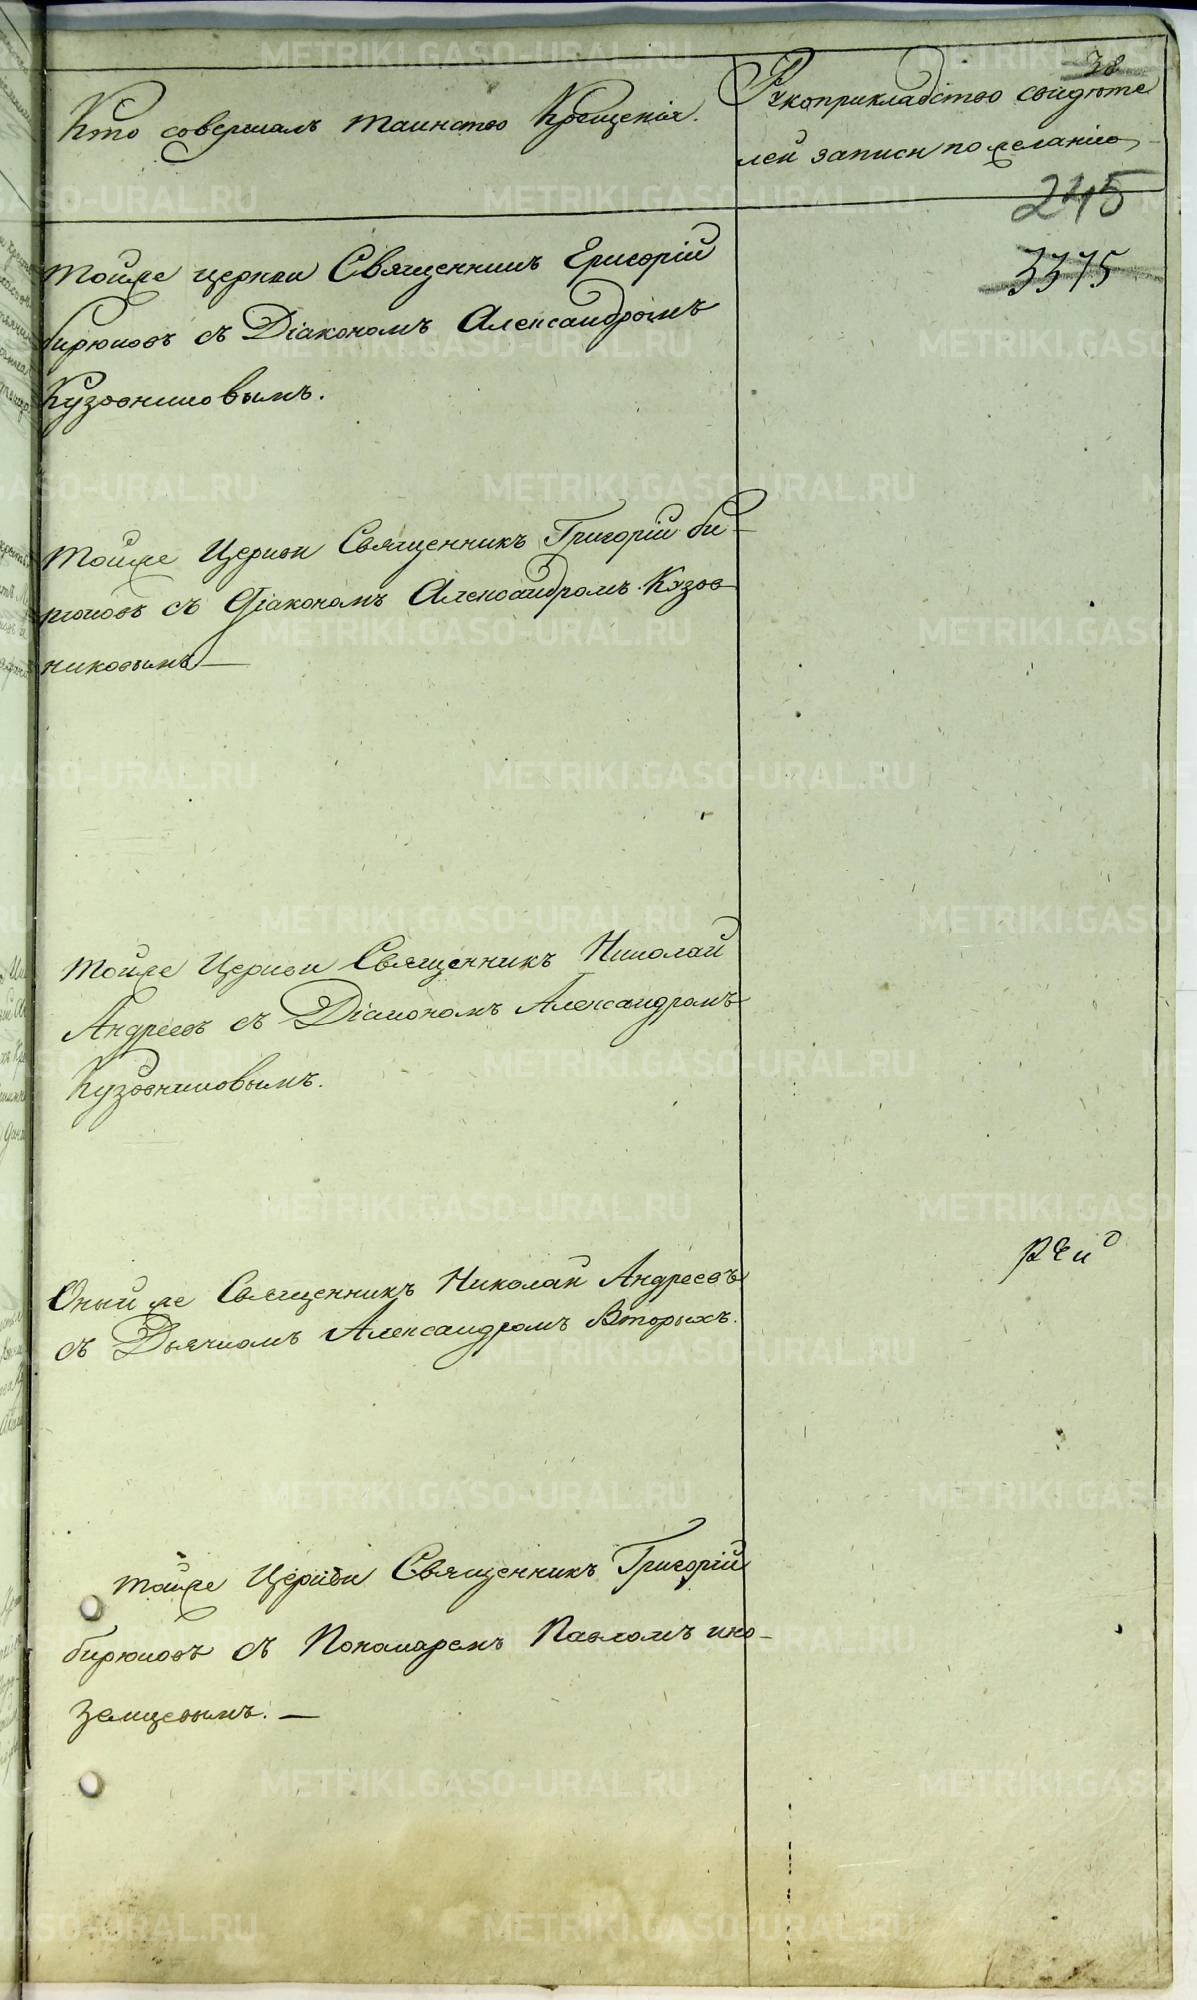 38
Кто совершалъ таинство Крещенія.
Рукоприкладство свидѣте
лей записи по желанію
245
3375
Тойже церкви Священникъ Григорій
Бирюковъ съ Діакономъ Александромъ
Кузовниковымъ.
Тойже Церкви Священникъ Григорій Би-
рюковъ съ Діакономъ Александромъ Кузов
никовымъ —
Тойже Церкви Священникъ Николай
Андреевъ съ Діакономъ Александромъ
Кузовниковымъ.
Оный же Священникъ Николай Андреевъ
съ Дьячкомъ Александромъ Вторыхъ.
Тойже Церкви Священникъ Григорій
Бирюковъ съ Пономаремъ Павломъ Ино-
земцевымъ. —
METRIKI.GASO-URAL.RU